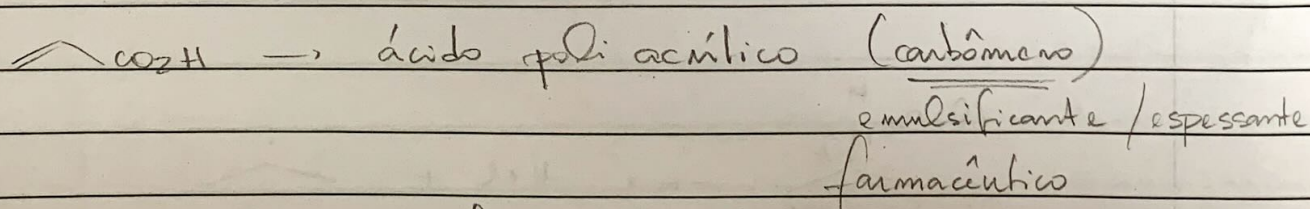 CO2H → ácido poli acrílico (carbômero)
emulsificante / espessante
farmacêutico